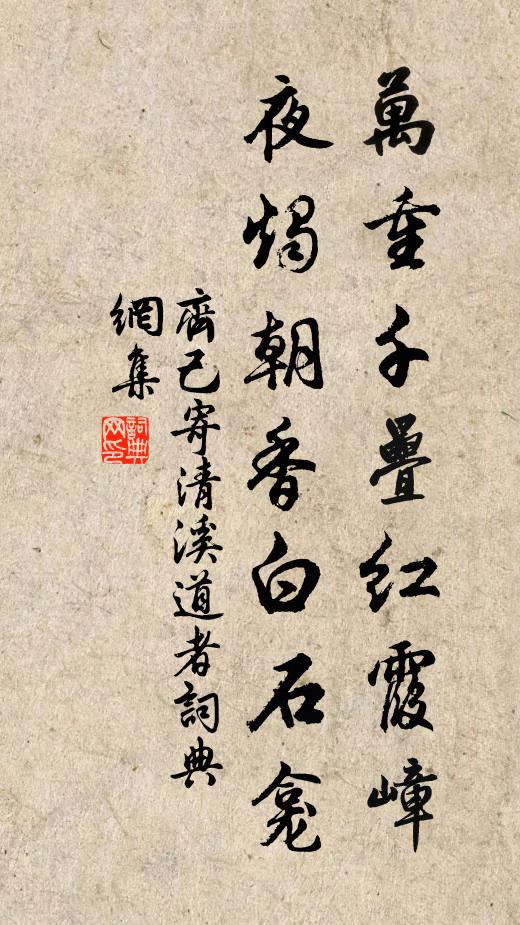 萬重千疊紅霞嶂
夜燭朝香白石龕
齊己寄清溪道者詞典
網集
詞典網印